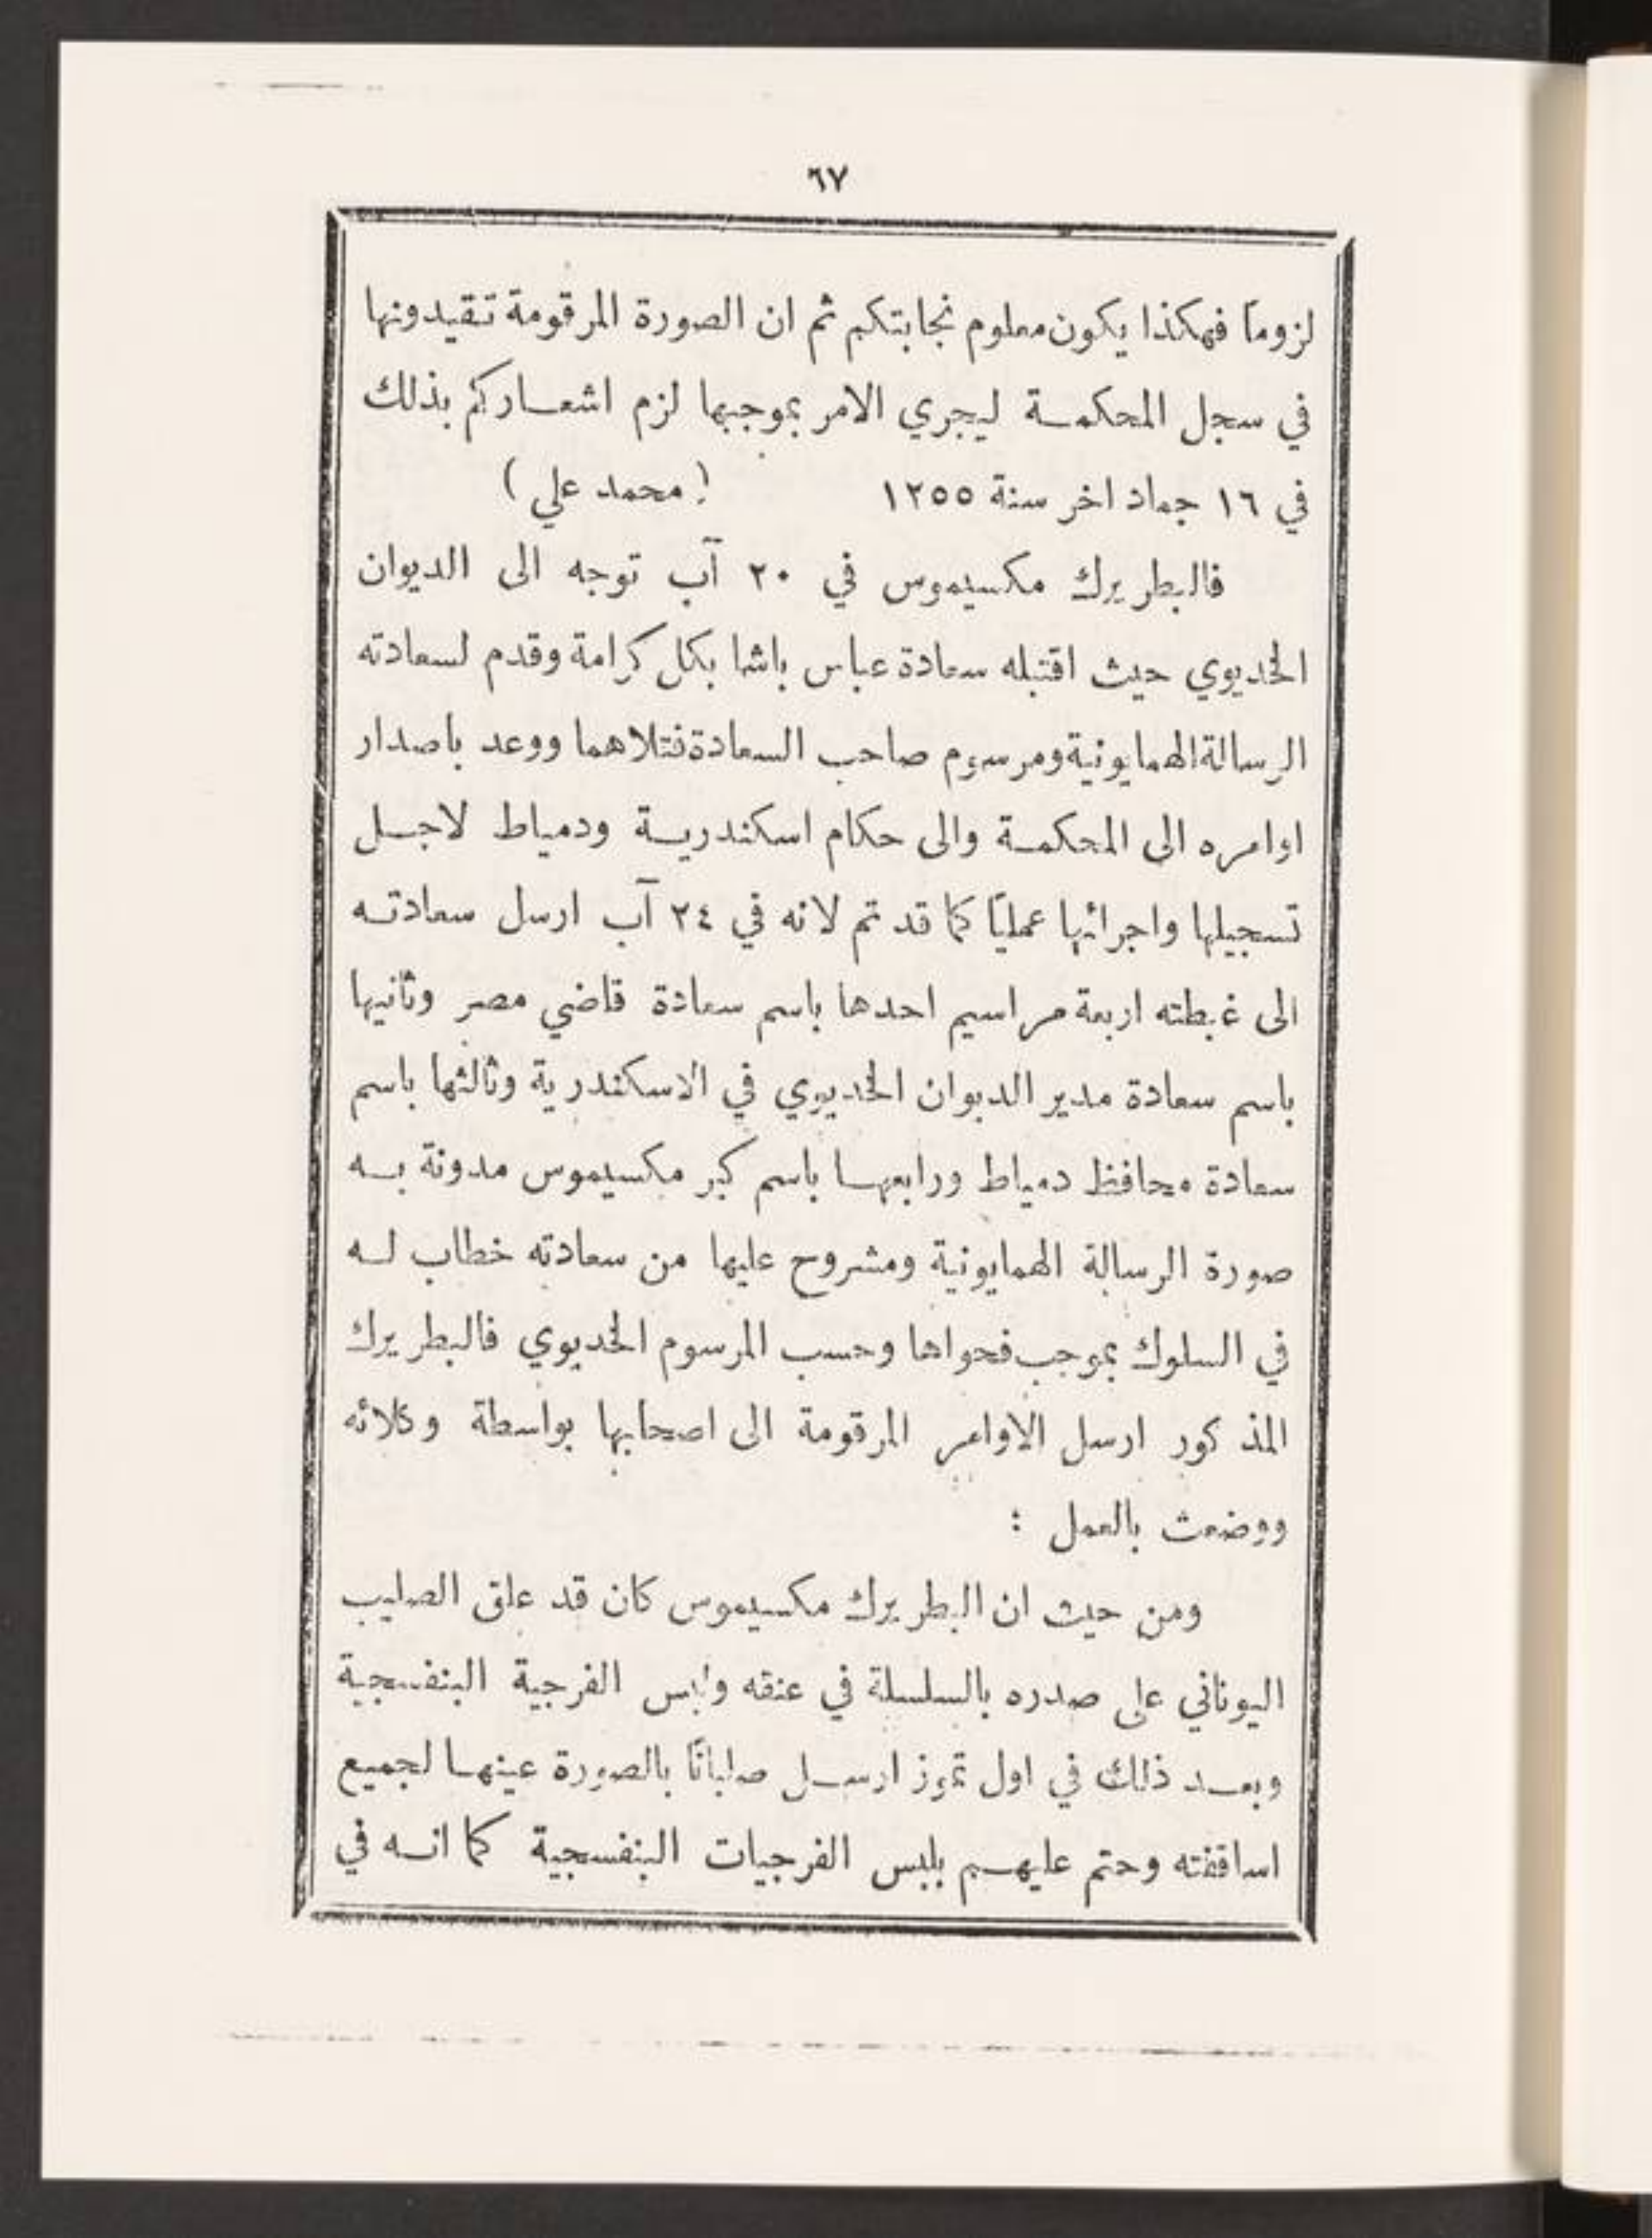 ٦٧
لزوماً فهكذا يكون معلوم نجابتكم ثم ان الصورة المرقومة تقيدونها
في سجل المحكمة ليجري الامر بموجبها لزم اشعاركم بذلك
في ١٦ جماد اخر سنة ١٢٥٥ (محمد علي)
فالبطريرك مكسيموس في ٢٠ آب توجه الى الديوان
الخديوي حيث اقتبله سعادة عباس باشا بكل كرامة وقدم لسعادته
الرسالة الهمايونية ومرسوم صاحب السعادة فتلاهما ووعد باصدار
اوامره الى المحكمة والى حكام اسكندرية ودمياط لاجل
تسجيلها واجرائها عملياً كما قد تم لانه في ٢٤ آب ارسل سعادته
الى غبطته اربعة مراسيم احدها باسم سعادة قاضي مصر وثانيها
باسم سعادة مدير الديوان الخديوي في الاسكندرية وثالثها باسم
سعادة محافظ دمياط ورابعها باسم كير مكسيموس مدونة به
صورة الرسالة الهمايونية ومشروح عليها من سعادته خطاب له
في السلوك بموجب فحواها وحسب المرسوم الخديوي فالبطريرك
المذكور ارسل الاوامر المرقومة الى اصحابها بواسطة وكلائه
ووضعت بالعمل :
ومن حيث ان البطريرك مكسيموس كان قد علق الصليب
اليوناني على صدره بالسلسلة في عنقه ولبس الفرجية البنفسجية
وبعد ذلك في اول تموز ارسل صلباناً بالصورة عينها لجميع
اساقفته وحتم عليهم بلبس الفرجيات البنفسجية كما انه في